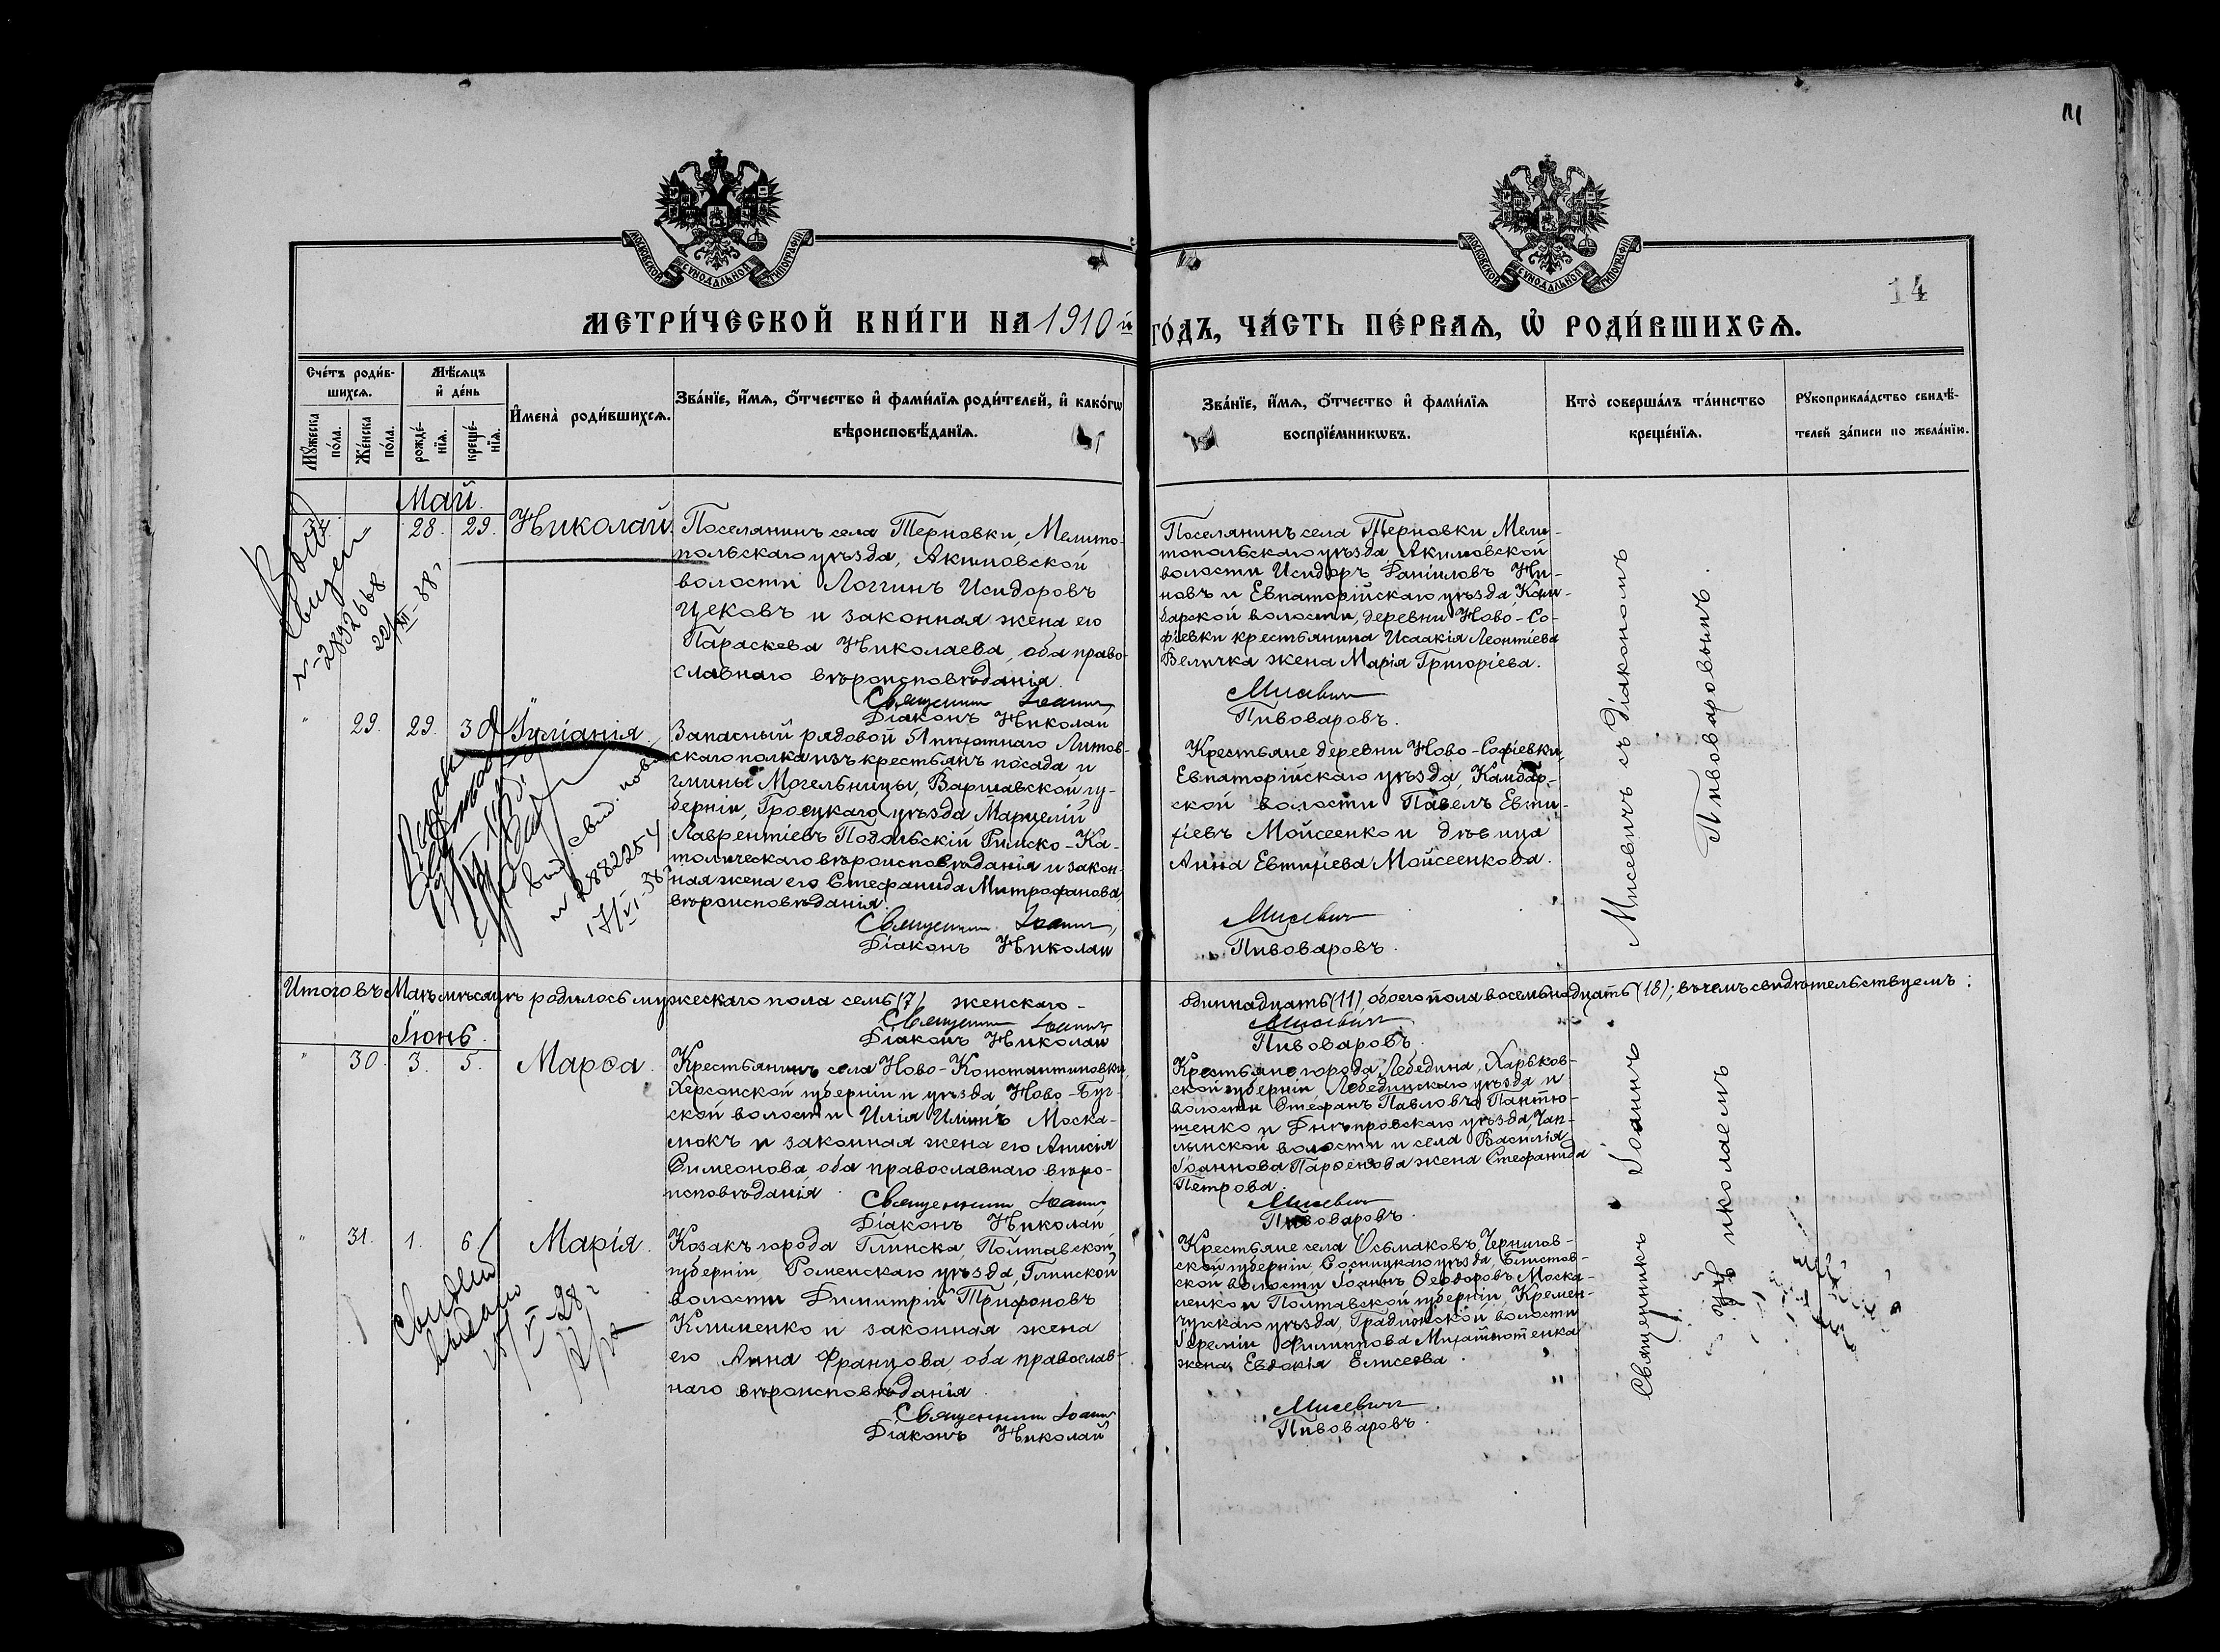 111
МОСКОВСКОЙ СѴНОДАЛЬНОЙ ТИПОГРАФІИ
МОСКОВСКОЙ СѴНОДАЛЬНОЙ ТИПОГРАФІИ
14
МЕТРИ́ЧЕСКОЙ КНИ́ГИ НА 1910 й ГО́ДЪ, ЧА́СТЬ ПЕ́РВАѦ, Ѡ҆ РОДИ́ВШИХСѦ.
Сче́тъ роди́в-
шихсѧ.
Мꙋ́жеска по́ла.
Же́нска по́ла.
Мѣ́сѧцъ
и҆ де́нь
рожде́-
нїѧ.
креще́-
нїѧ.
И҆мена̀ роди́вшихсѧ.
Зва́нїе, и҆́мѧ, ѻ҆́тчество и҆ фами́лїѧ роди́телей, и҆ како́гѡ
вѣроисповѣ́данїѧ.
Зва́нїе, и҆́мѧ, ѻ҆́тчество и҆ фами́лїѧ
воспрїе́мникѡвъ.
Кто̀ соверша́лъ та́инство
креще́нїѧ.
Рꙋкоприкла́дство свидѣ́-
телей за́писи по жела́нїю.
Май.
28. 29. Николай
Поселянинъ села Терновки, Мелито-
польскаго уѣзда, Акимовской
волости Логгинъ Исидоровъ
Цековъ и законная жена его
Параскева Николаева, оба право-
славнаго вѣроисповѣданія.
Священник Іоанн
Діаконъ Николай
Поселянинъ села Терновки, Мели-
топольскаго уѣзда, Акимовской
волости Исидоръ Даніиловъ Ни-
новъ и Евпаторійскаго уѣзда, Кам-
барской волости, деревни Ново-Со-
фіевки крестьянина Исаакія Леонтіева
Величка жена Марія Григоріева.
Мисевич
Пивоваровъ.
№ 2892668
22/XII-38 г
" 29. 29. 30 Іуліанія.
Запасный рядовой 51 пѣхотнаго Литов-
скаго полка изъ крестьянъ посада и
гмины Могельницы, Варшавской гу-
берніи, Гроецкаго уѣзда Марцелій
Лаврентіевъ Подольскій Римско-Ка-
толическаго вѣроисповѣданія и закон-
ная жена его Стефанида Митрофанова
вѣроисповѣданія.
Священник Іоанн
Діаконъ Николай
Крестьяне деревни Ново-Софіевки,
Евпаторійскаго уѣзда, Камбар-
ской волости Павелъ Евти-
хіевъ Мойсеенко и дѣвица
Анна Евтихіева Мойсеенкова.
Мисевич
Пивоваровъ.
выд. свид. повт
№ 2882254
17/VI-38
Итого въ Маѣ мѣсяцѣ родилось мужескаго пола семь (7), женскаго - одиннадцать (11) обоего пола восемьнадцать (18); въ чемъ свидѣтельствуемъ:
Священник Іоанн Мисевич
Діаконъ Николай Пивоваровъ.
Іюнь.
" 30. 3. 5. Марѳа.
Крестьянинъ села Ново-Константиновки,
Херсонской губерніи и уѣзда Ново-Буг-
ской волости Илія Иліинъ Моска-
люкъ и законная жена его Анисія
Симеонова оба православнаго вѣро-
исповѣданія.
Священник Іоанн
Діаконъ Николай
Крестьяне города Лебедина, Харьков-
ской губерніи, Лебединскаго уѣзда и
волости Стефанъ Павловъ Пантю-
шенко и Днѣпровскаго уѣзда, Чап-
лынской волости и села Василія
Іоаннова Парѳенова жена Стефанида
Петрова.
Мисевич
Пивоваровъ.
" 31. 1. 6. Марія.
Козакъ города Глинска, Полтавской
губерніи, Роменскаго уѣзда, Глинской
волости Димитрій Трифоновъ
Клименко и законная жена
его Анна Францова оба православ-
наго вѣроисповѣданія.
Священник Іоанн
Діаконъ Николай
Крестьяне села Осьмаковъ, Чернигов-
ской губерніи, Сосницкаго уѣзда, Блистов-
ской волости Іоаннъ Ѳеодоровъ Моска-
ленко и Полтавской губерніи, Кремен-
чугскаго уѣзда, Градижской волости
Іереміи Филиппова
жена Евдокія Елисеева.
Мисевич
Пивоваровъ.
выдано
Священникъ Іоаннъ Мисевичъ съ діакономъ
Николаемъ Пивоваровымъ.